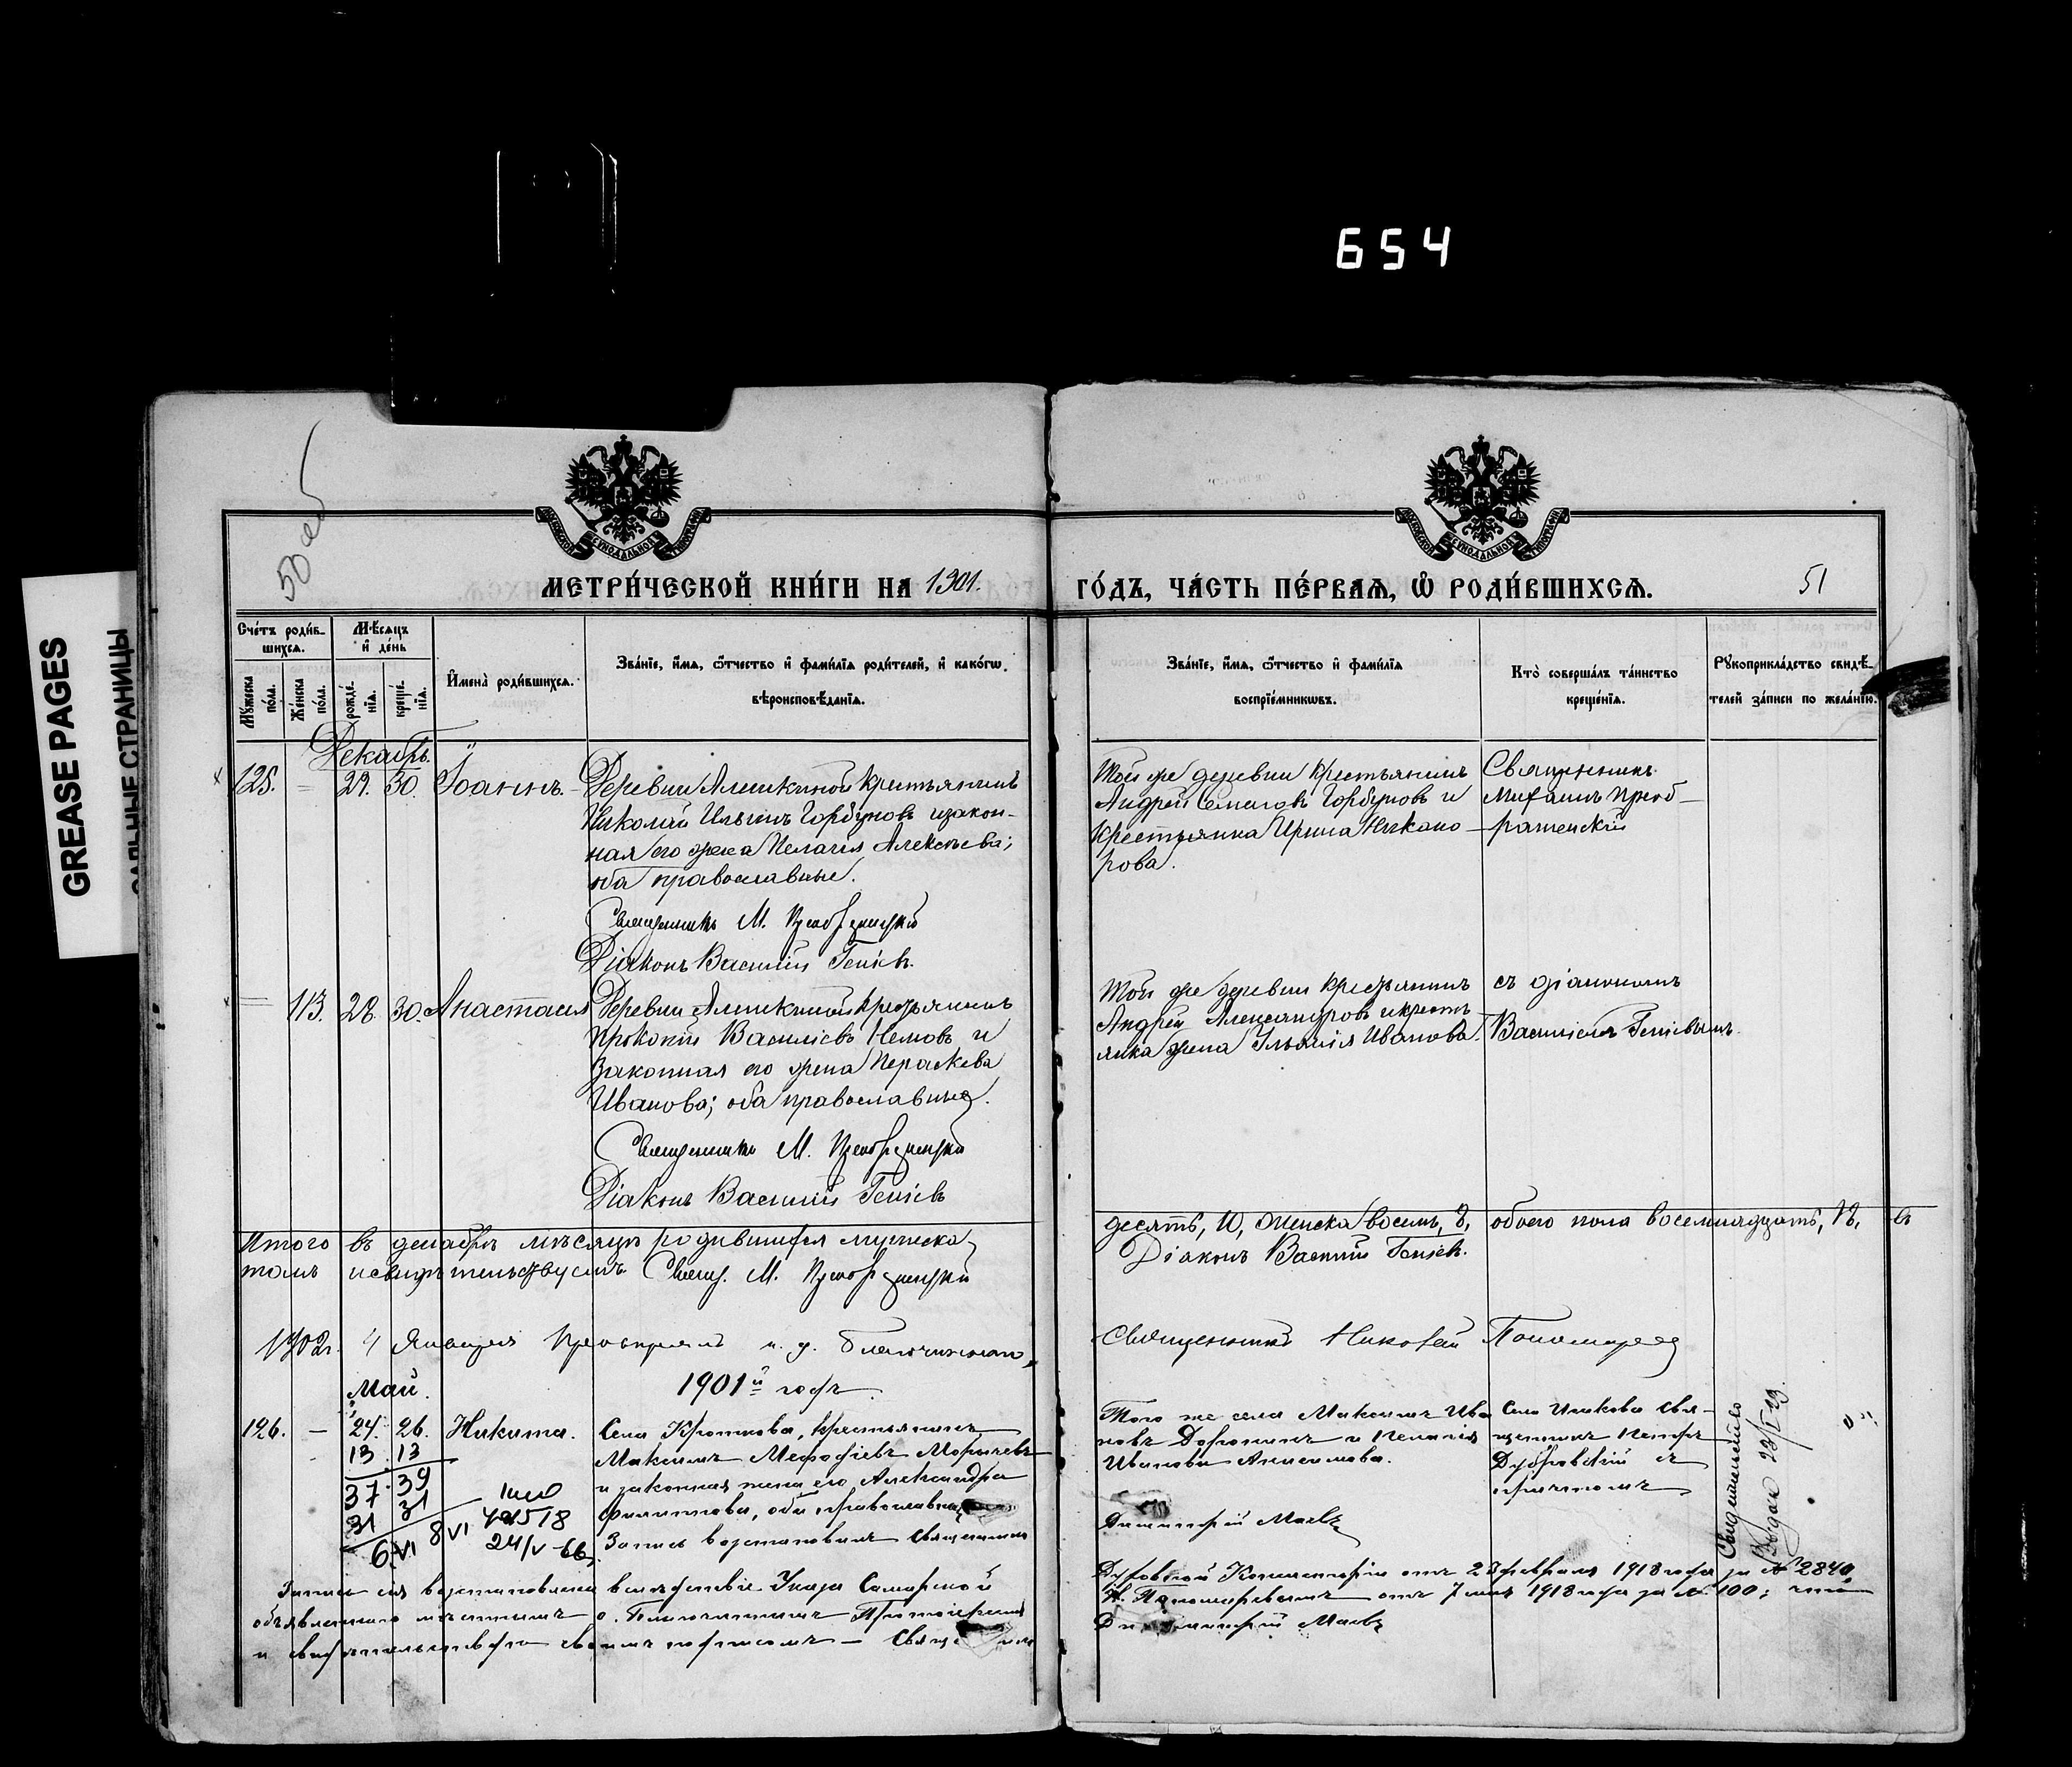 654
GREASE PAGES
САЛЬНЫЕ СТРАНИЦЫ
50 об
МЕТРИ́ЧЕСКОЙ КНИ́ГИ НА 1901.
ГО́ДЪ, ЧА́СТЬ ПЕ́РВАѦ, Ѿ РОДИ́ВШИХСѦ.
51
Сче́тъ роди́в-
шихсѧ.
Мѣ́сѧцъ
и҆ де́нь
Мꙋ́жеска по́ла.
Же́нска по́ла.
рожде́-нїѧ.
креще́-нїѧ.
И҆мена̀ роди́вшихсѧ.
Зва́нїе, и҆́мѧ, ѻ҆́тчество и҆ фами́лїѧ роди́телей, и҆ како́гѡ
вѣроисповѣ́данїѧ.
Зва́нїе, и҆́мѧ, ѻ҆́тчество и҆ фами́лїѧ
воспрїе́мникѡвъ.
Кто̀ соверша́лъ та́инство
креще́нїѧ.
Рꙋкоприкла́дство свидѣ́-
телей за́писи по жела́нїю.
Декабрь.
125. — 29. 30. Іоаннъ.
Деревни Алешкиной крестьянинъ
Николай Ильинъ Горбуновъ и закон-
ная его жена Пелагія Алексѣева;
оба православные.
Священникъ М. Преображенскій
Діаконъ Василій Геніевъ.
Той же деревни крестьянинъ
Андрей Горбуновъ и
крестьянка Ирина Никано-
рова.
Священникъ
Михаилъ Преоб-
раженскій
— 113. 28. 30. Анастасія
Деревни Алешкиной крестьянинъ
Прокопій Василіевъ Немовъ и
законная его жена Параскева
Иванова; оба православные.
Священникъ М. Преображенскій
Діаконъ Василій Геніевъ
Той же деревни крестьянинъ
Андрей Александровъ и кресть-
янка жена Иванова.
съ діакономъ
Василіемъ Геніевымъ.
Итого въ декабрѣ мѣсяцѣ родившихся мужеска
десять, 10, женска восемь, 8, обоего пола восемнадцать, 18, въ
томъ и свидѣтельствуемъ. Свящ. М. Преображенскій
Діаконъ Василій Геніевъ.
1902г. 4 Января и. д. Благочиннаго,
Священникъ Николай Пономаревъ
Май.
1901й годъ.
126. — 24. 26. Никита.
13 13
37 39
31 31
6/VI 8/VI
24/V-66
Села Кроткова, крестьянинъ
Максимъ Меѳодіевъ
и законная жена его Александра
Филиппова, оба православные
Запись возстановилъ священникъ
Того же села Максимъ Ива-
новъ Доронинъ и Пелагія
Иванова Анисимова.
Димитрій Маевъ
Села свя-
щенникъ Петръ
Дубровскій съ
причтомъ
Запись сія возстановлена вслѣдствіе Указа Самарской
Духовной Консисторіи отъ 23 февраля 1918 года за № 2840,
объявленнаго мѣстнымъ о. Благочиннымъ Протоіереемъ
Н. Пономаревымъ отъ 7 мая 1918 года за № 100; что
и свидѣтельствую своимъ подписомъ — Священникъ
Димитрій Маевъ